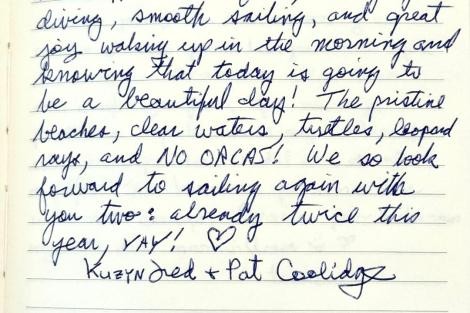 diving, smooth sailing, and great
joy waking up in the morning and
knowing that today is going to
be a beautiful day! The pristine
beaches, clear waters, turtles, leopard
rays, and NO ORCAS! We so look
forward to sailing again with
you two: already twice this
year, YAY! ♡
+ Pat Coolidge